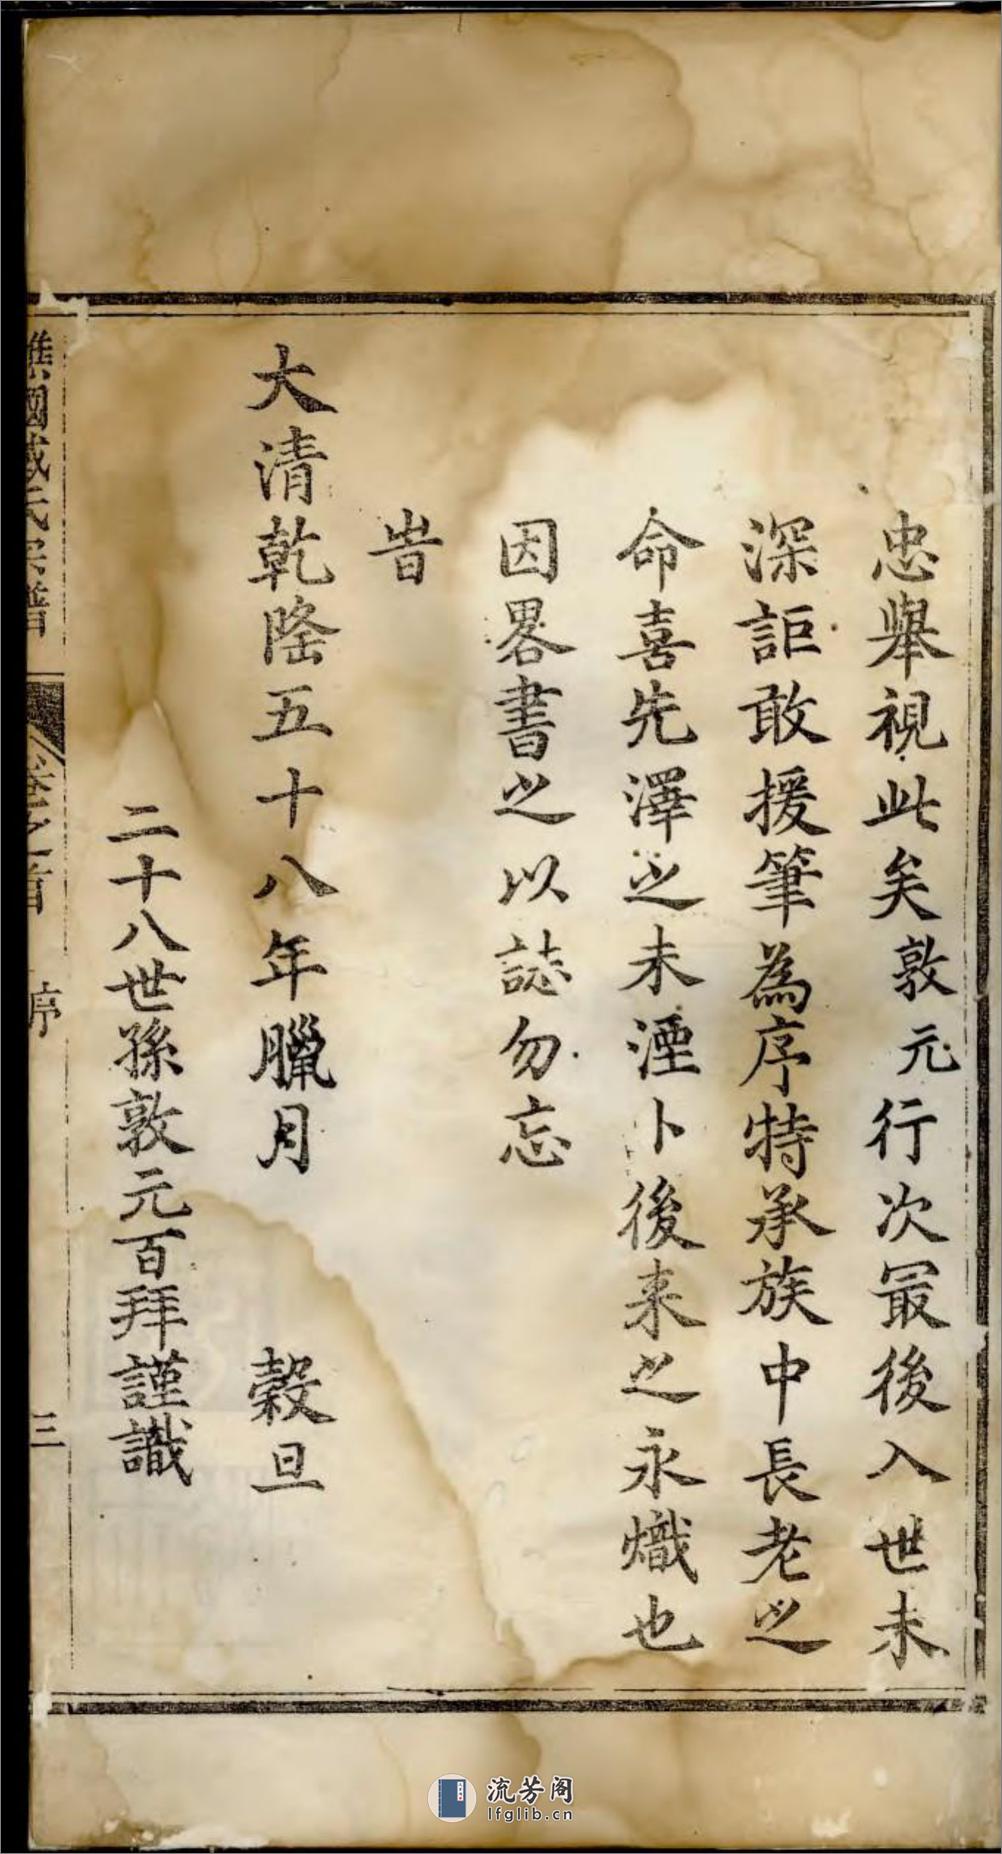 忠舉視此矣敦元行次最後入世未
深詎敢援筆為序特承族中長老之
命喜先澤之未湮卜後来之永熾也
因畧書之以誌勿忘
旹
大清乾隆五十八年臘月 穀旦
二十八世孫敦元百拜謹識
譙國戴氏宗譜 卷之首 序 三
流芳阁
lfglib.cn